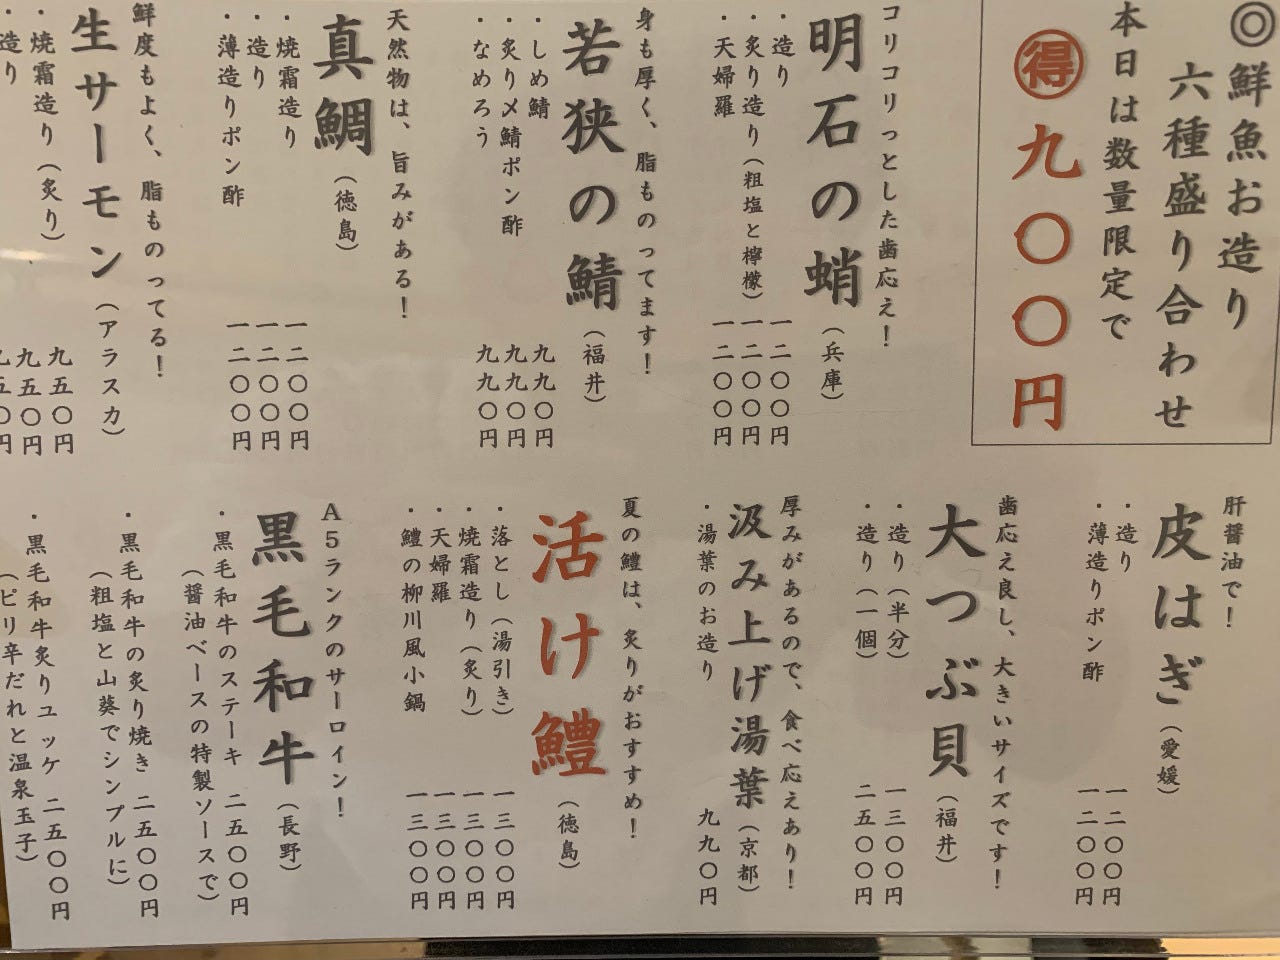 ◎鮮魚お造り
六種盛り合わせ
本日は数量限定で
得九〇〇円
コリコリっとした歯応え！
明石の蛸（兵庫）
・造り 一二〇〇円
・炙り造り（粗塩と檸檬） 一二〇〇円
・天婦羅 一二〇〇円
身も厚く、脂ものってます！
若狭の鯖（福井）
・しめ鯖 九九〇円
・炙り〆鯖ポン酢 九九〇円
・なめろう 九九〇円
天然物は、旨みがある！
真鯛（徳島）
・焼霜造り 一二〇〇円
・造り 一二〇〇円
・薄造りポン酢 一二〇〇円
鮮度もよく、脂ものってる！
生サーモン（アラスカ）
九五〇円
・焼霜造り（炙り） 九五〇円
・造り 九五〇円
肝醤油で！
皮はぎ（愛媛）
・造り 一二〇〇円
・薄造りポン酢 一二〇〇円
歯応え良し、大きいサイズです！
大つぶ貝（福井）
・造り（半分） 一三〇〇円
・造り（一個） 二五〇〇円
厚みがあるので、食べ応えあり！
汲み上げ湯葉（京都）
・湯葉のお造り 九九〇円
夏の鱧は、炙りがおすすめ！
活け鱧（徳島）
・落とし（湯引き） 一三〇〇円
・焼霜造り（炙り） 一三〇〇円
・天婦羅 一三〇〇円
・鱧の柳川風小鍋 一三〇〇円
A５ランクのサーロイン！
黒毛和牛（長野）
・黒毛和牛のステーキ 二五〇〇円
（醤油ベースの特製ソースで）
・黒毛和牛の炙り焼き 二五〇〇円
（粗塩と山葵でシンプルに）
・黒毛和牛炙りユッケ 二五〇〇円
（ピリ辛だれと温泉玉子）